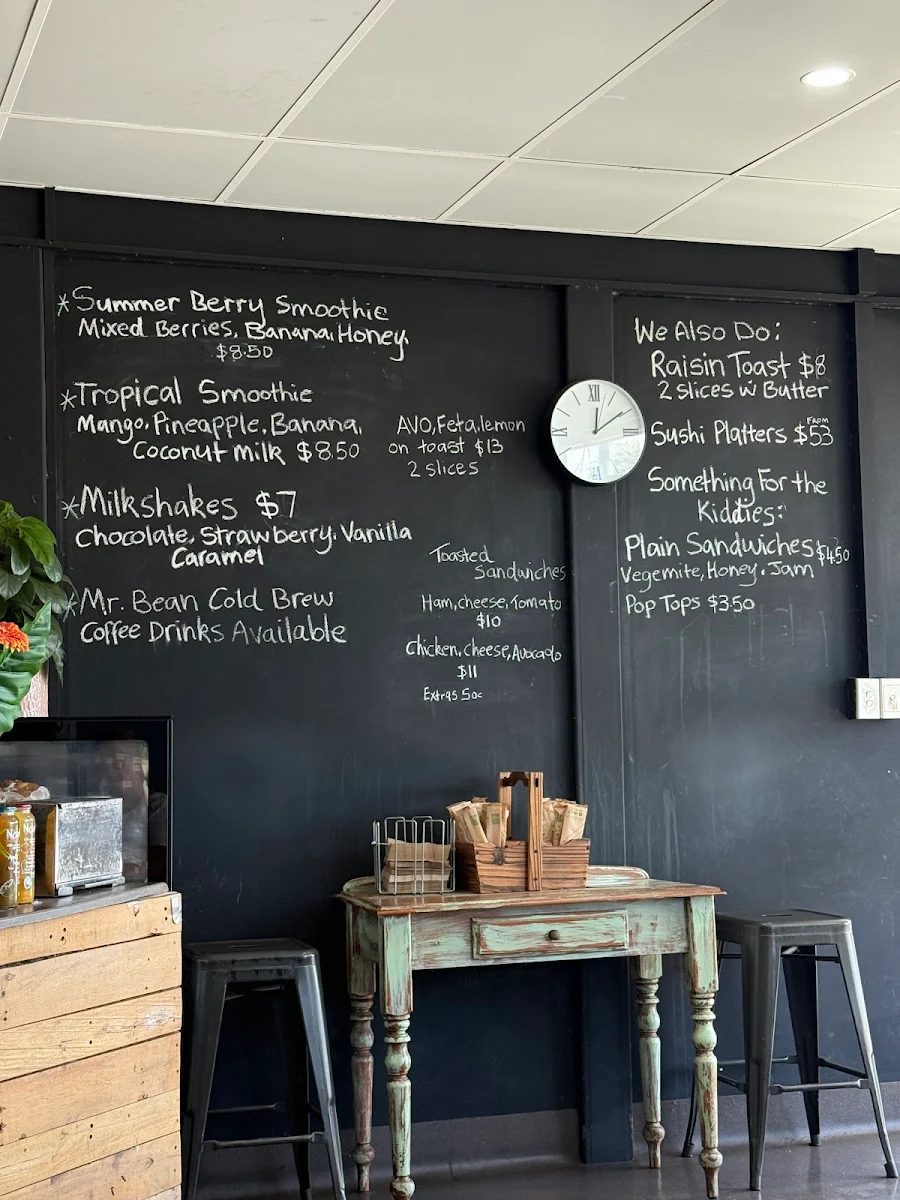 *Summer Berry Smoothie
Mixed Berries, Banana, Honey.
$8.50
*Tropical Smoothie
Mango, Pineapple, Banana,
Coconut Milk $8.50
*Milkshakes $7
Chocolate, Strawberry, Vanilla
Caramel
*Mr. Bean Cold Brew
Coffee Drinks Available
AVO, Feta, lemon
on toast $13
2 slices
Toasted
Sandwiches
Ham, cheese, Tomato
$10
Chicken, cheese, Avocado
$11
Extras 50c
XII
III
VI
IX
We Also Do:
Raisin Toast $8
2 slices w Butter
Sushi Platters FROM $53
Something For the
Kiddies:
Plain Sandwiches $4.50
Vegemite, Honey, Jam
Pop Tops $3.50